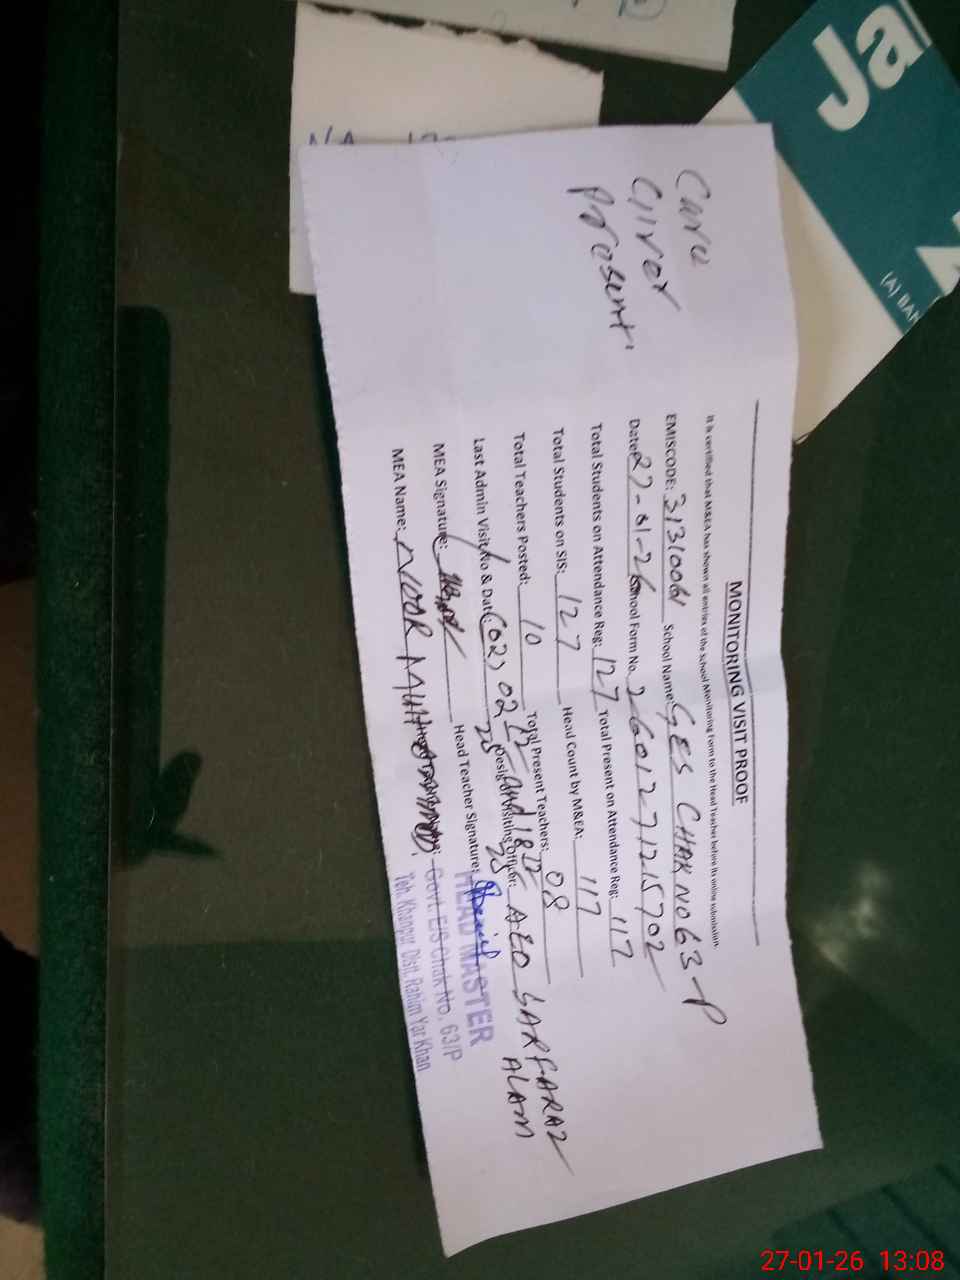 Care
Giver
Present
MONITORING VISIT PROOF
It is certified that M&EA has shown all entries of the School Monitoring Form to the Head Teacher before its online submission.
EMISCODE: 31310061 School Name: GES CHAK NO 63-P
Date: 27-01-26 School Form No. 2601271215702
Total Students on Attendance Reg: 127 Total Present on Attendance Reg: 117
Total Students on SIS: 127 Head Count by M&EA: 117
Total Teachers Posted: 10 Total Present Teachers: 08
Last Admin Visit No & Date: (02) 02 12 25 and 18 12 25 Visiting Officer: AEO SARFARAZ
ALAM
MEA Signature: Head Teacher Signature:
MEA Name: NOOR MUHAMMAD
HEAD MASTER
Govt. E/S Chak No. 63/P
Teh. Khanpur Distt. Rahim Yar Khan
Ja
(A) BAN
27-01-26 13:08